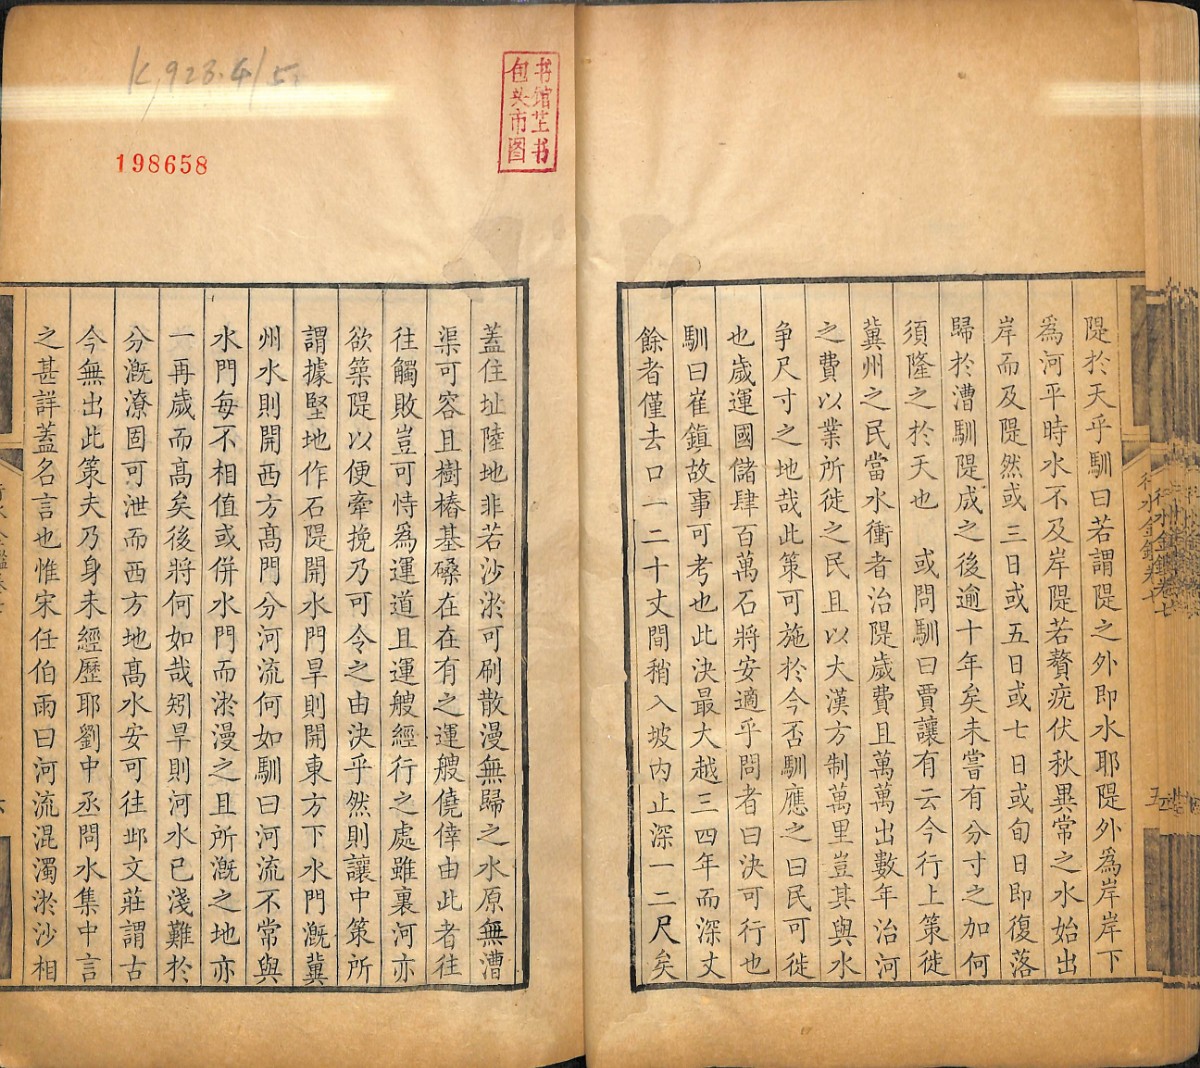 隄於天乎馴曰若謂隄之外即水耶隄外爲岸岸下
爲河平時水不及岸隄若贅疣伏秋異常之水始出
岸而及隄然或三日或五日或七日或旬日即復落
歸於漕馴隄成之後逾十年矣未嘗有分寸之加何
須隆之於天也 或問馴曰賈讓有云今行上策徙
冀州之民當水衝者治隄歲費且萬萬出數年治河
之費以業所徙之民且以大漢方制萬里豈其與水
争尺寸之地哉此策可施於今否馴應之曰民可徙
也歲運國儲肆百萬石將安適乎問者曰決可行也
馴曰崔鎮故事可考也此決最大越三四年而深丈
餘者僅去口一二十丈間稍入坡内止深一二尺矣
蓋住址陸地非若沙淤可刷散漫無歸之水原無漕
渠可容且樹樁基磉在在有之運艘僥倖由此者往
往觸敗豈可恃爲運道且運艘經行之處雖裏河亦
欲築隄以便牽挽乃可令之由決乎然則讓中策所
謂據堅地作石隄開水門旱則開東方下水門溉冀
州水則開西方高門分河流何如馴曰河流不常與
水門每不相值或併水門而淤漫之且所溉之地亦
一再歲而高矣後將何如哉矧旱則河水已淺難於
分溉潦固可泄而西方地高水安可往邺文莊謂古
今無出此策夫乃身未經歷耶劉中丞問水集中言
之甚詳蓋名言也惟宋任伯雨曰河流混濁淤沙相
行水金鑑卷七
五
198658
K923.4/5
包头市图
书馆芷书